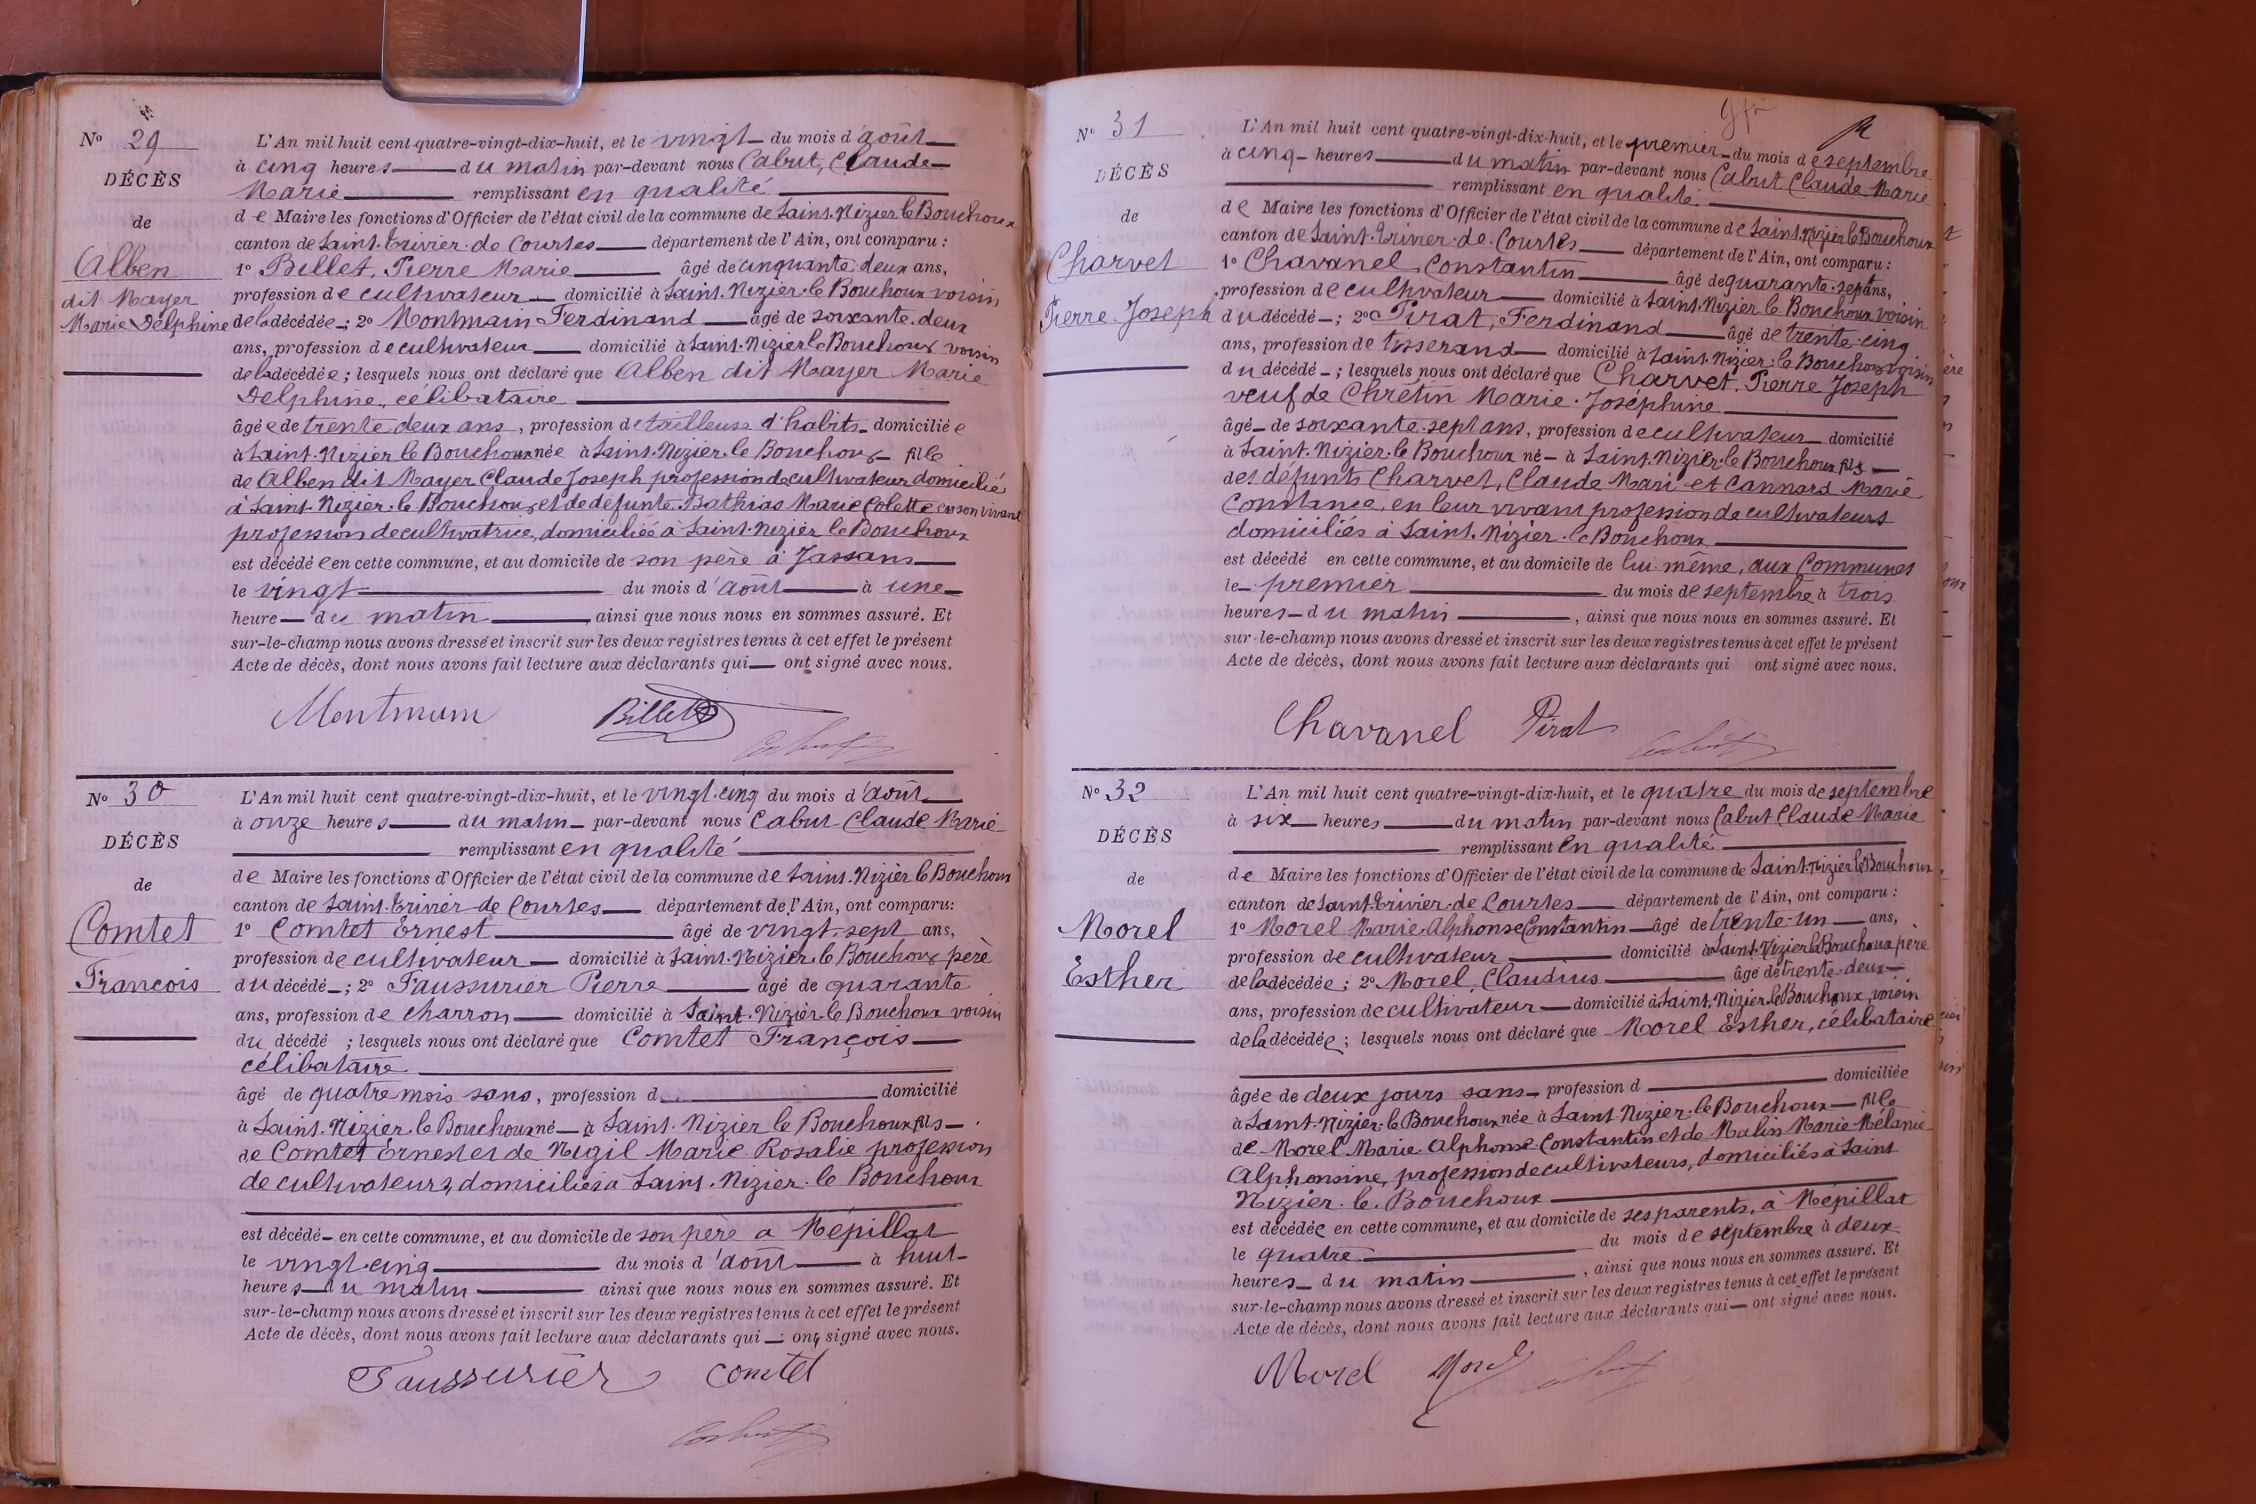 N° 29
DÉCÈS
de
Alben
dit Mayer
Marie Delphine
L'An mil huit cent quatre-vingt-dix-huit, et le vingt du mois d'août
à cinq heures du matin par-devant nous Cabut, Claude
Marie remplissant en qualité
de Maire les fonctions d'Officier de l'état civil de la commune de Saint-Nizier le Bouchoux
canton de Saint-Trivier-de Courtes département de l'Ain, ont comparu :
1° Billet, Pierre Marie âgé de cinquante deux ans,
profession de cultivateur domicilié à Saint-Nizier-le Bouchoux voisin
de la décédée ; 2° Montmain Ferdinand âgé de soixante-deux
ans, profession de cultivateur domicilié à Saint-Nizier le Bouchoux voisin
de la décédée ; lesquels nous ont déclaré que Alben dit Mayer Marie
Delphine, célibataire
âgée de trente deux ans, profession de tailleuse d'habits domiciliée
à Saint-Nizier le Bouchoux née à Saint-Nizier-le Bouchoux fille
de Alben dit Mayer Claude Joseph profession de cultivateur domicilié
à Saint-Nizier-le Bouchoux et de défunte Bathias Marie Colette en son vivant
profession de cultivatrice, domiciliée à Saint-Nizier le Bouchoux
est décédée en cette commune, et au domicile de son père à Jassans
le vingt du mois d'août à une
heure du matin ainsi que nous nous en sommes assuré. Et
sur-le-champ nous avons dressé et inscrit sur les deux registres tenus à cet effet le présent
Acte de décès, dont nous avons fait lecture aux déclarants qui ont signé avec nous.
Montmain Billet
N° 30
DÉCÈS
de
Comtet
François
L'An mil huit cent quatre-vingt-dix-huit, et le vingt-cinq du mois d'août
à onze heures du matin par-devant nous Cabut Claude Marie
remplissant en qualité
de Maire les fonctions d'Officier de l'état civil de la commune de Saint-Nizier le Bouchoux
canton de Saint-Trivier-de Courtes département de l'Ain, ont comparu:
1° Comtet Ernest âgé de vingt-sept ans,
profession de cultivateur domicilié à Saint-Nizier-le Bouchoux père
du décédé ; 2° Faussurier Pierre âgé de quarante
ans, profession de charron domicilié à Saint-Nizier-le Bouchoux voisin
du décédé ; lesquels nous ont déclaré que Comtet François
célibataire
âgé de quatre mois sans, profession d domicilié
à Saint-Nizier-le Bouchoux né à Saint-Nizier le Bouchoux fils
de Comtet Ernest et de Nigil Marie Rosalie profession
de cultivateurs, domiciliés à Saint-Nizier-le Bouchoux
est décédé en cette commune, et au domicile de son père a Mépillat
le vingt-cinq du mois d'août à huit
heures du matin ainsi que nous nous en sommes assuré. Et
sur-le-champ nous avons dressé et inscrit sur les deux registres tenus à cet effet le présent
Acte de décès, dont nous avons fait lecture aux déclarants qui ont signé avec nous.
Faussurier Comtet
N° 31
DÉCÈS
de
Charvet
Pierre-Joseph
L'An mil huit cent quatre-vingt-dix-huit, et le premier du mois de septembre
à cinq heures du matin par-devant nous Cabut Claude Marie
remplissant en qualité
de Maire les fonctions d'Officier de l'état civil de la commune de Saint-Nizier le Bouchoux
canton de Saint-Trivier-de-Courtes département de l'Ain, ont comparu :
1° Chavanel, Constantin âgé de quarante-sept ans,
profession de cultivateur domicilié à Saint-Nizier le Bouchoux voisin
du décédé ; 2° Pirat, Ferdinand âgé de trente-cinq
ans, profession de tisserand domicilié à Saint-Nizier-le Bouchoux voisin
du décédé ; lesquels nous ont déclaré que Charvet Pierre Joseph
veuf de Chrétin Marie-Joséphine
âgé de soixante-sept ans, profession de cultivateur domicilié
à Saint-Nizier-le Bouchoux né à Saint-Nizier-le Bouchoux fils
des défunts Charvet, Claude Mari et Cannard Marie
Constance, en leur vivant profession de cultivateurs
domiciliés à Saint-Nizier-le Bouchoux
est décédé en cette commune, et au domicile de lui même, aux Communes
le premier du mois de septembre à trois
heures du matin, ainsi que nous nous en sommes assuré. Et
sur-le-champ nous avons dressé et inscrit sur les deux registres tenus à cet effet le présent
Acte de décès, dont nous avons fait lecture aux déclarants qui ont signé avec nous.
Chavanel Pirat
N° 32
DÉCÈS
de
Morel
Esther
L'An mil huit cent quatre-vingt-dix-huit, et le quatre du mois de septembre
à six heures du matin par-devant nous Cabut Claude Marie
remplissant en qualité
de Maire les fonctions d'Officier de l'état civil de la commune de Saint-Nizier le Bouchoux
canton de Saint-Trivier-de Courtes département de l'Ain, ont comparu :
1° Morel Marie Alphonse Constantin âgé de trente-un ans,
profession de cultivateur domicilié à Saint-Nizier le Bouchoux père
de la décédée ; 2° Morel, Claudius âgé de trente-deux
ans, profession de cultivateur domicilié à Saint-Nizier le Bouchoux, voisin
de la décédée ; lesquels nous ont déclaré que Morel Esther, célibataire
âgée de deux jours sans profession d domiciliée
à Saint-Nizier-le Bouchoux née à Saint Nizier-le Bouchoux fille
de Morel Marie Alphonse-Constantin et de Malin Marie-Mélanie
Alphonsine, profession de cultivateurs, domiciliés à Saint
Nizier-le-Bouchoux
est décédée en cette commune, et au domicile de ses parents, à Mépillat
le quatre du mois de septembre à deux
heures du matin, ainsi que nous nous en sommes assuré. Et
sur-le-champ nous avons dressé et inscrit sur les deux registres tenus à cet effet le présent
Acte de décès, dont nous avons fait lecture aux déclarants qui ont signé avec nous.
Morel Morel